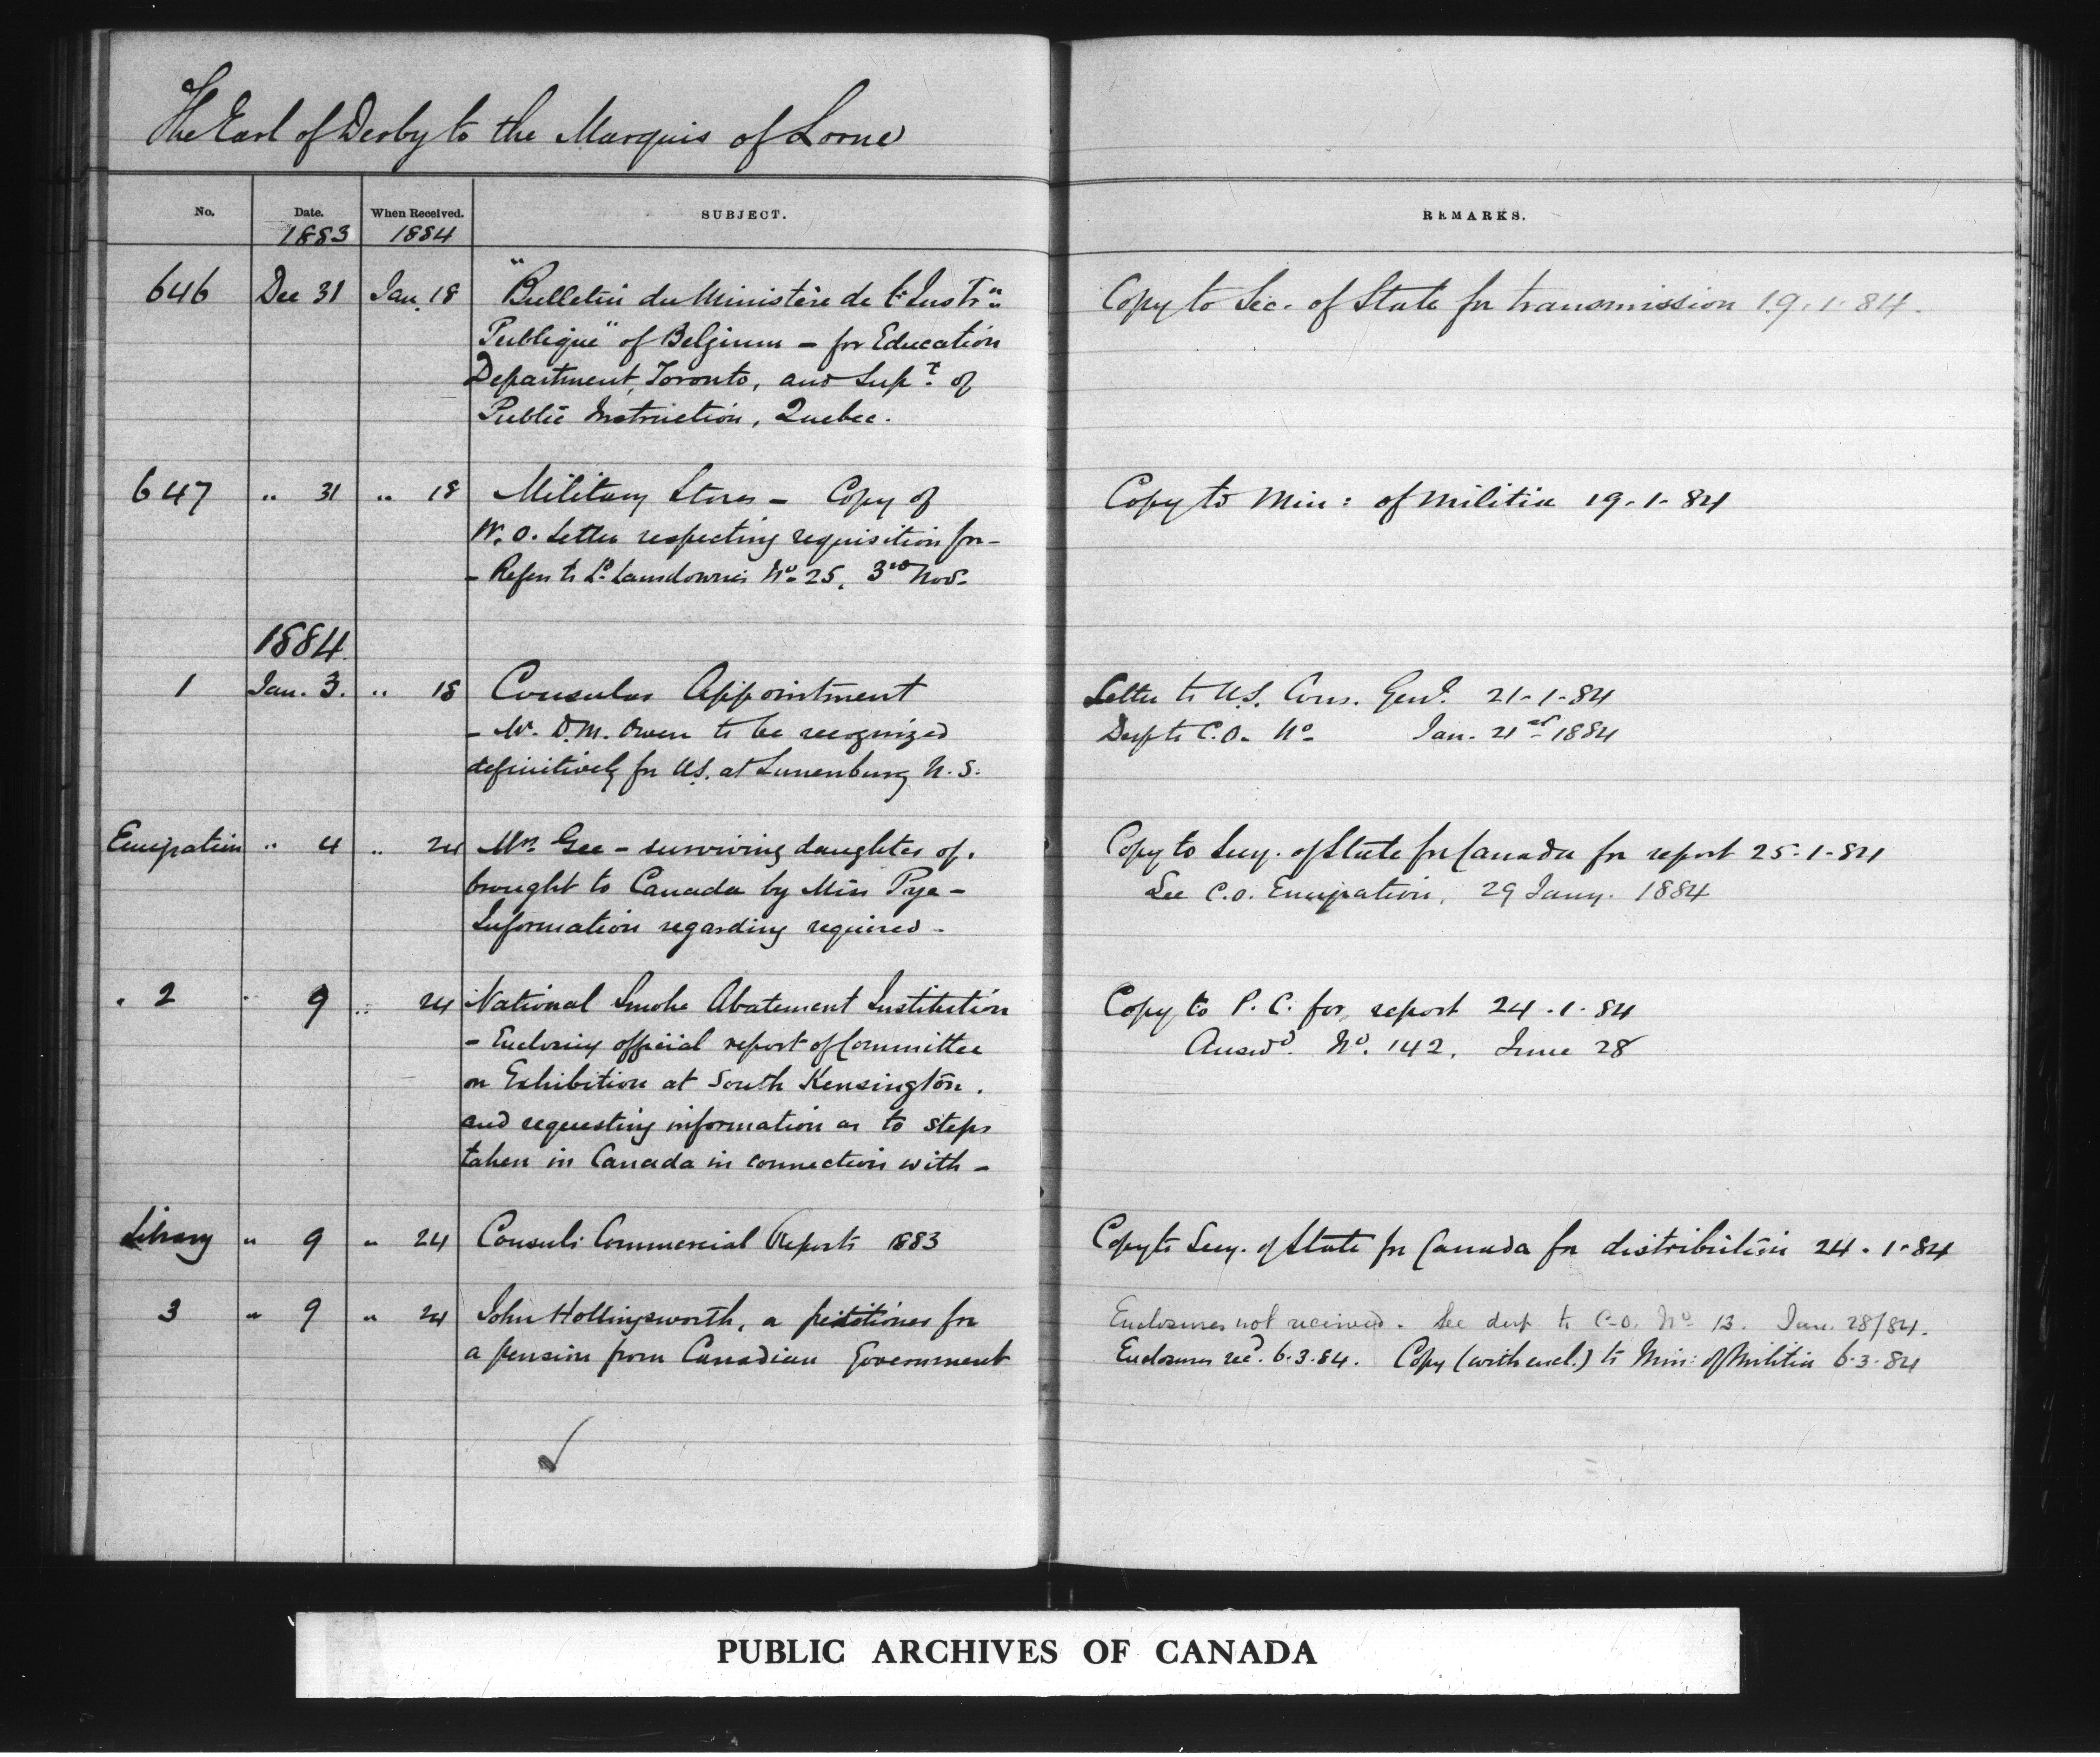 The Earl of Derby to the Marquis of Lorne
No. Date. When Received. SUBJECT. REMARKS.
1883 1884
646 Dec 31 Jan. 18 "Bulletin du Ministère de l'Instrn Copy to Sec. of State for transmission 19.1.84.
Publique" of Belgium - for Education
Department, Toronto, and Supt. of
Public Instruction, Quebec.
647 " 31 " 18 Military Stores - Copy of Copy to Min: of Militia 19-1-84
W.O. Letter respecting requisition for -
- Refers to Ld. Lansdowne's No. 25, 3rd Nov.
1884
1 Jan. 3. " 18 Consular Appointment Letter to U.S. Cons. Genl. 21-1-84
- Mr. D.M. Owen to be recognized Desp to C.O. No. Jan. 21st 1884
definitively for U.S. at Lunenburg N.S.
Emigration " 4 " 24 Mrs. Gee - surviving daughter of, Copy to Secy. of State for Canada for report 25-1-84
brought to Canada by Miss Rye - See C.O. Emigration, 29 Jany. 1884
Information regarding required -
2 " 9 " 24 National Smoke Abatement Institution Copy to P.C. for report 24.1.84
- Enclosing official report of Committee Answd. No. 142, June 28
on Exhibition at South Kensington,
and requesting information as to steps
taken in Canada in connection with -
Library " 9 " 24 Consuls Commercial Reports 1883 Copy to Secy. of State for Canada for distribution 24.1.84
3 " 9 " 24 John Hollingsworth, a petitioner for Enclosures not received. See desp. to C.O. No. 13. Jan. 28/84.
a pension from Canadian Government Enclosures recd. 6.3.84. Copy (with encl.) to Min: of Militia 6.3.84
PUBLIC ARCHIVES OF CANADA